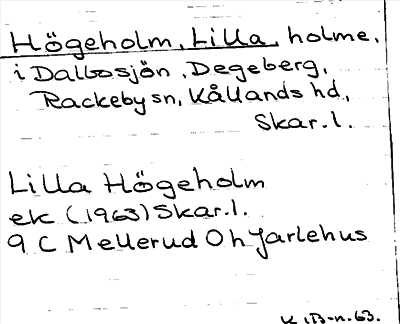 Högeholm, Lilla, holme,
i Dalbosjön, Degeberg,
Rackeby sn, Kållands hd,
Skar. l.
Lilla Högeholm
ek (1963) Skar. l.
9 C Mellerud Oh Jarlehus
63.